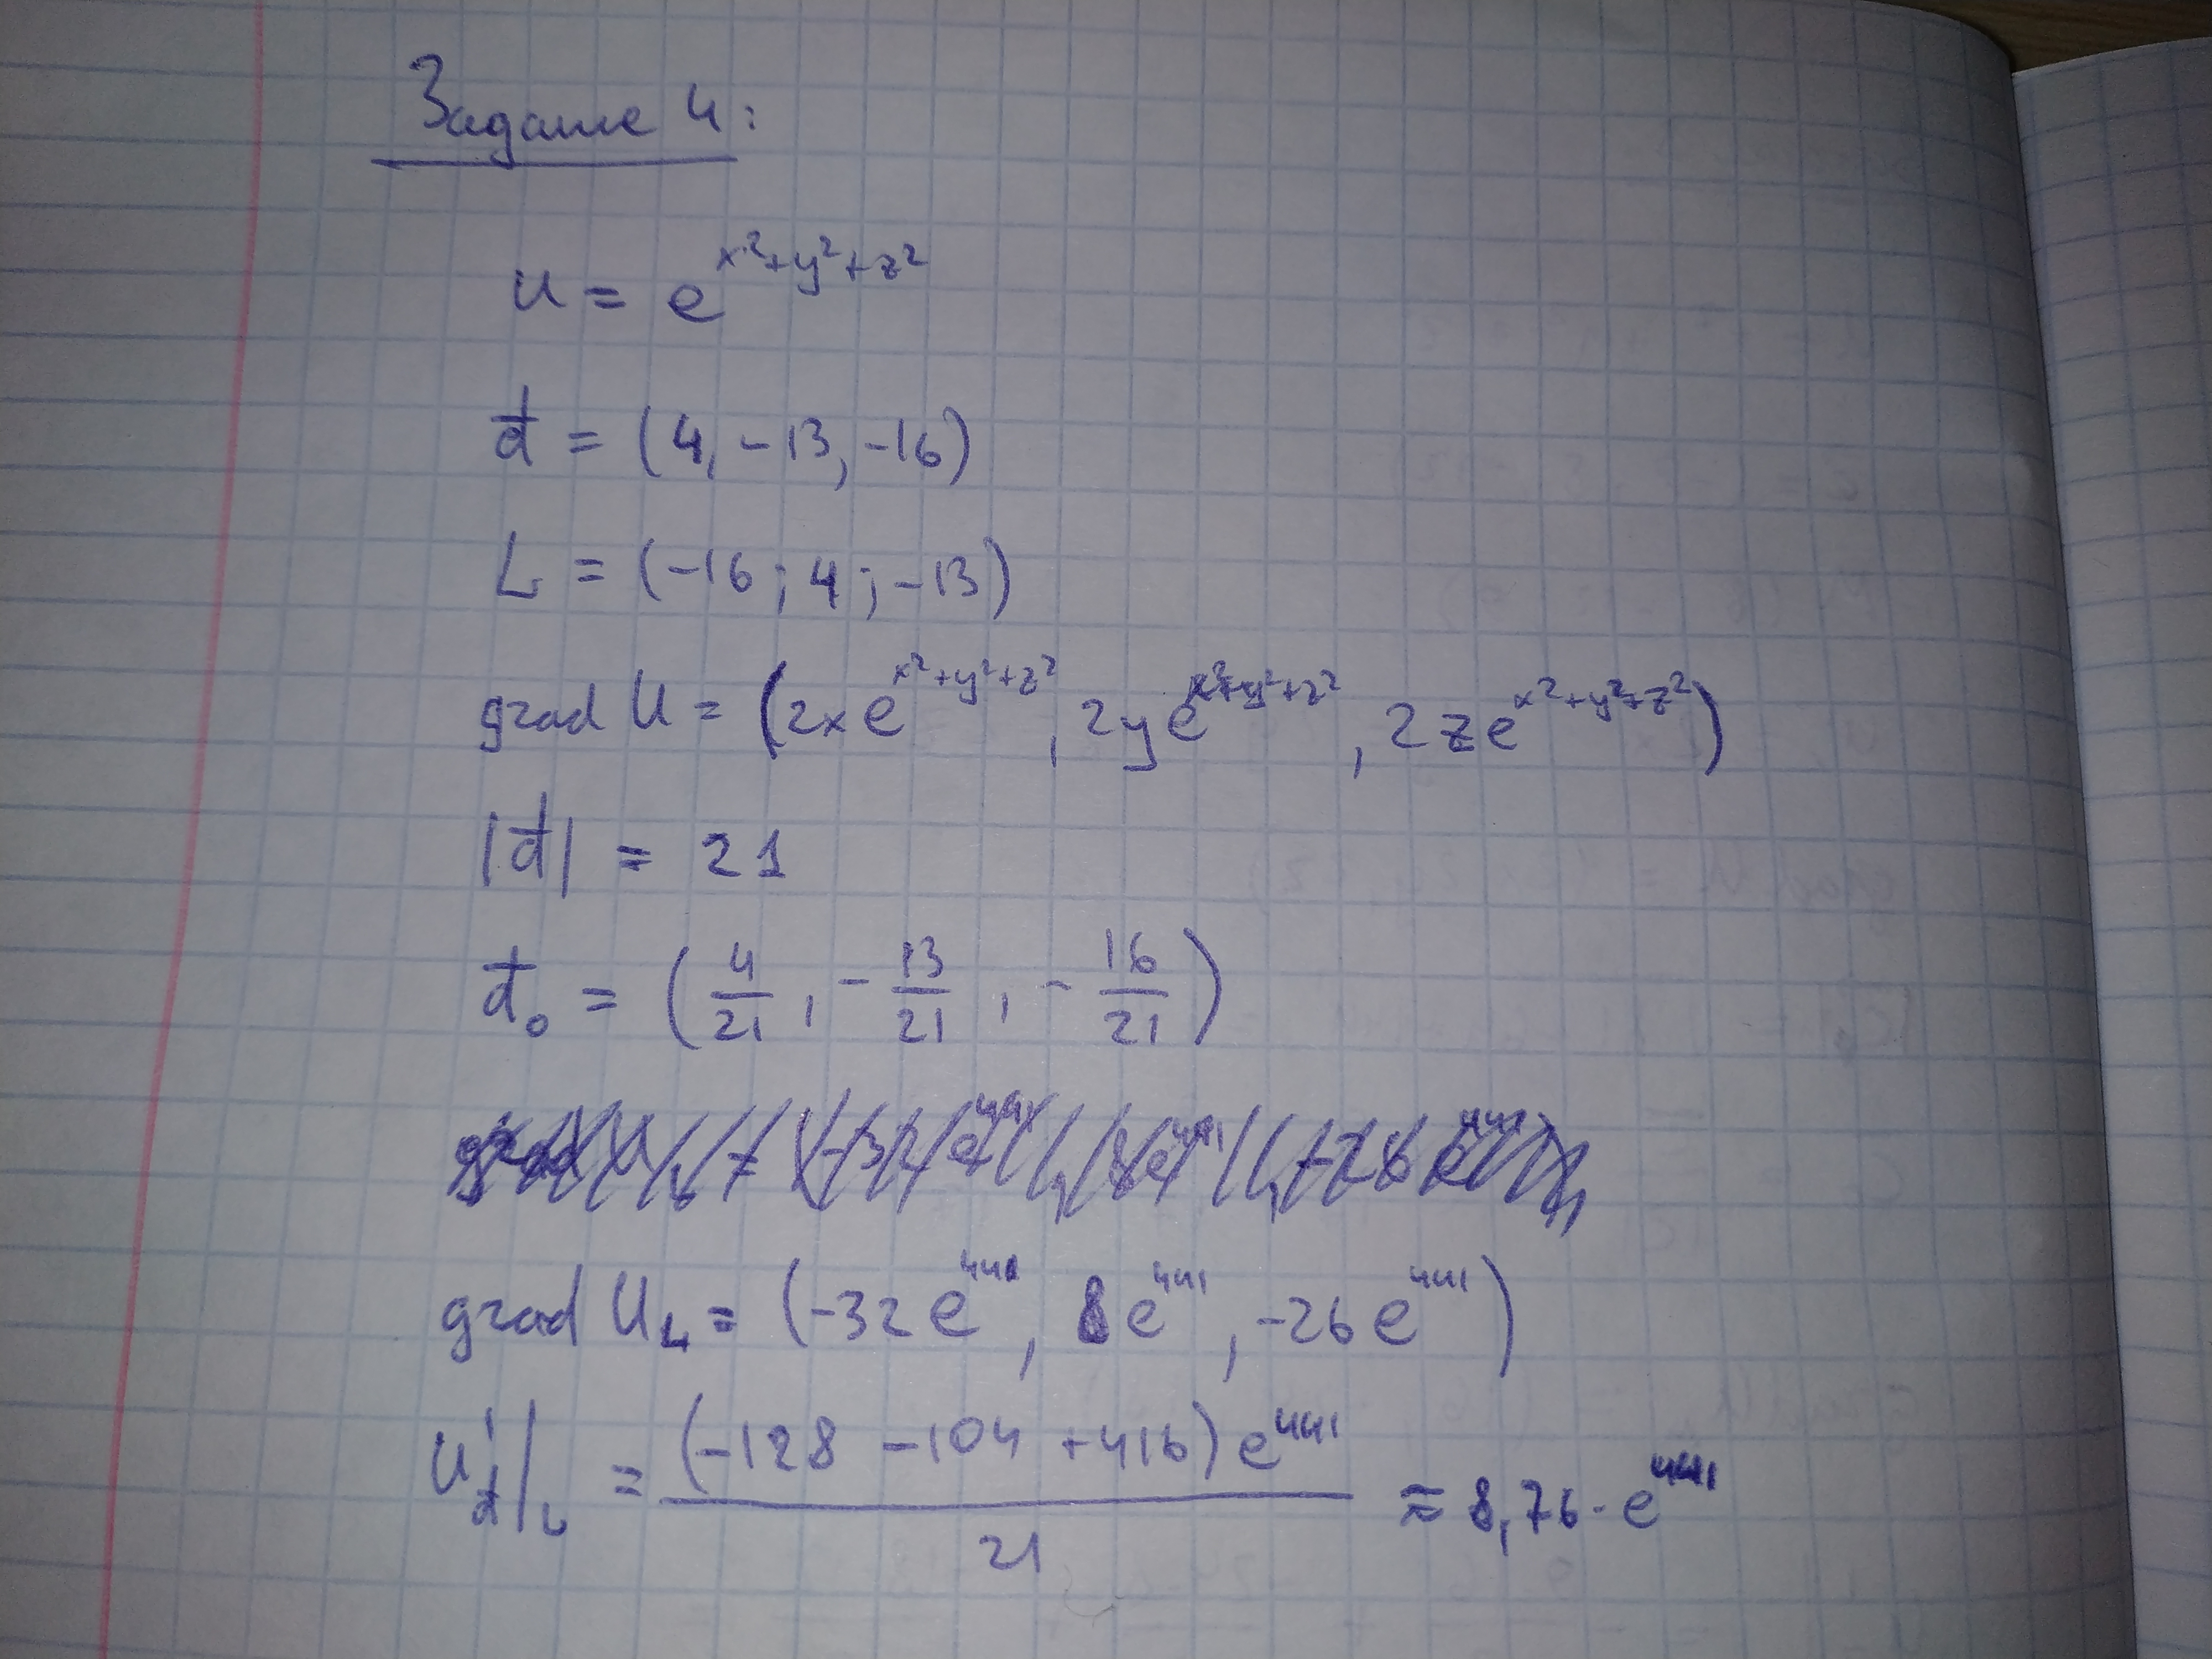 Задание 4:
u = e^{x²+y²+z²}
d⃗ = (4, -13, -16)
L = (-16; 4; -13)
grad U = (2xe^{x²+y²+z²}, 2ye^{x²+y²+z²}, 2ze^{x²+y²+z²})
|d⃗| = 21
d⃗₀ = (4/21, -13/21, -16/21)
grad U_L = (-32e^{441}, 8e^{441}, -26e^{441})
U'_d⃗|_L = (-128 -104 +416)e^{441} / 21 ≈ 8,76·e^{441}